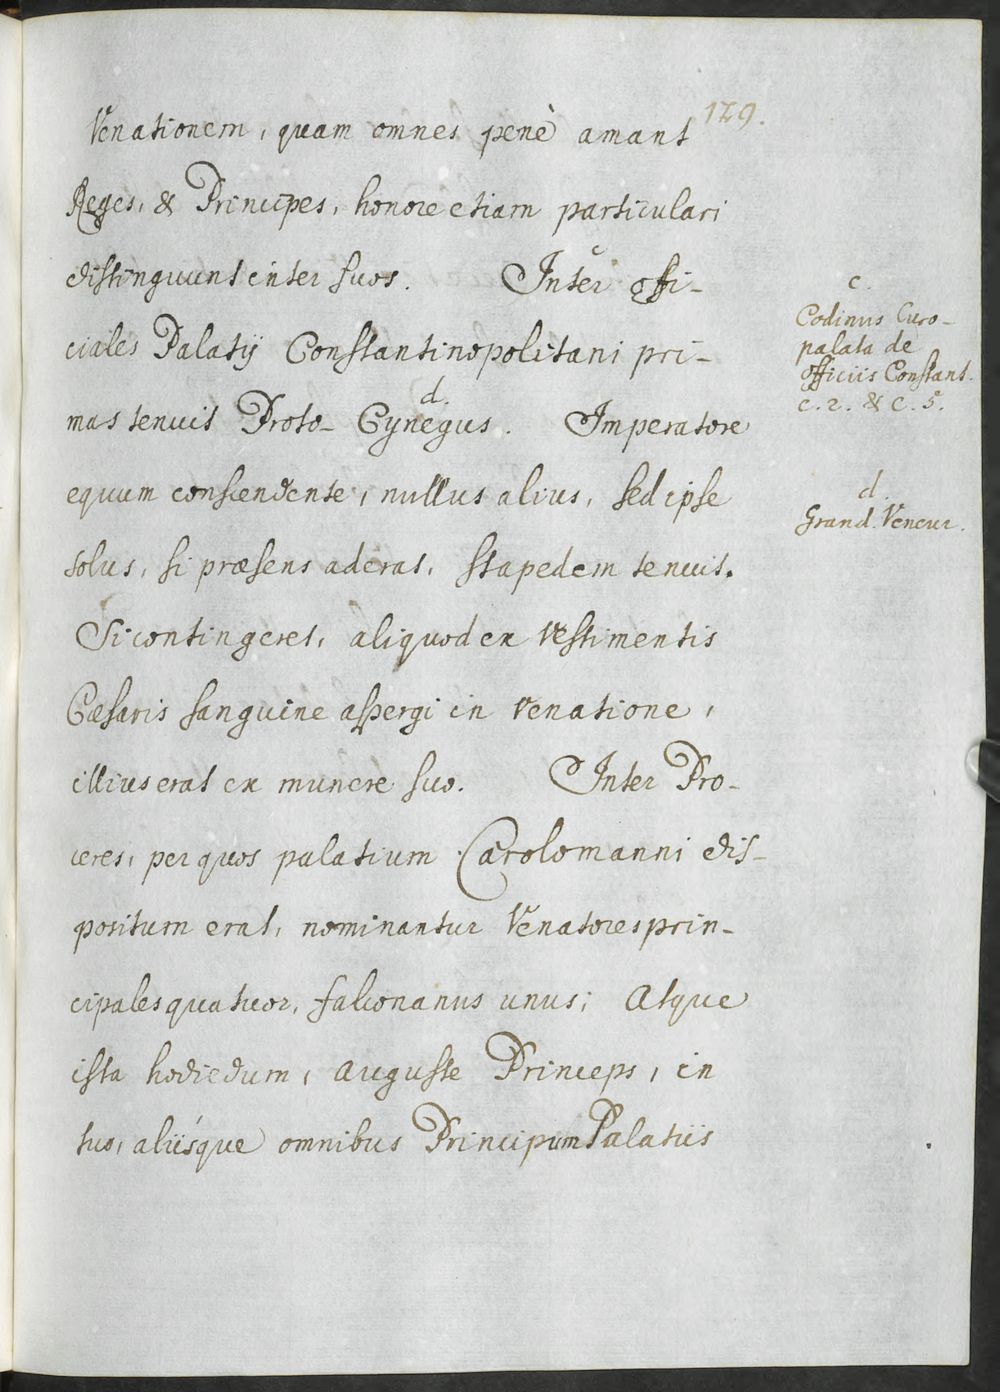 129.
Venationem, quam omnes penè amant
Reges, & Principes, honore etiam particulari
distinguunt inter suos. Inter offi-
ciales Palatij Constantinopolitani pri-
mas tenuit Proto-Cynegus. Imperatore
equum conscendente, nullus alius, sed ipse
solus, si præsens aderat, stapedem tenuit.
Si contingeret, aliquod ex vestimentis
Cæsaris sanguine aspergi in venatione,
illius erat ex munere suo. Inter Pro-
ceres, per quos palatium Carolomanni dis-
positum erat, nominantur Venatores prin-
cipales quatuor, falconarius unus; Atque
ista hodiedum, Auguste Princeps, in
tuo, aliísque omnibus Principum Palatiis
c.
Codinus Curo-
palata de
officiis Constant.
c. 2. & c. 5.
d.
Grand. Veneur.
c
d.